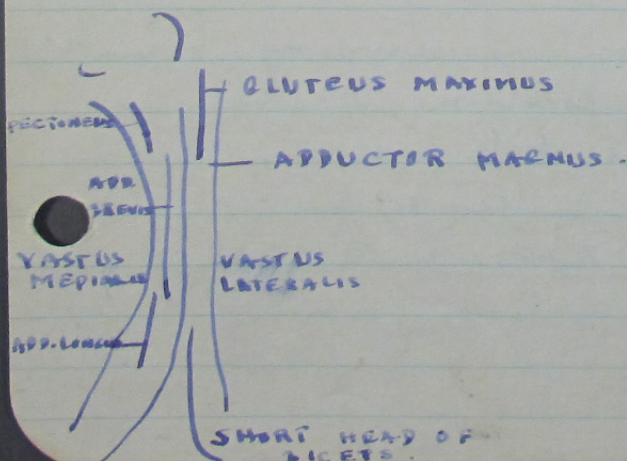 GLUTEUS MAXIMUS
PECTONEUS
ADDUCTOR MAGNUS.
ADD.
BREVIS
VASTUS
MEDIALIS
VASTUS
LATERALIS
ADD. LONGUS
SHORT HEAD OF
BICEPS.